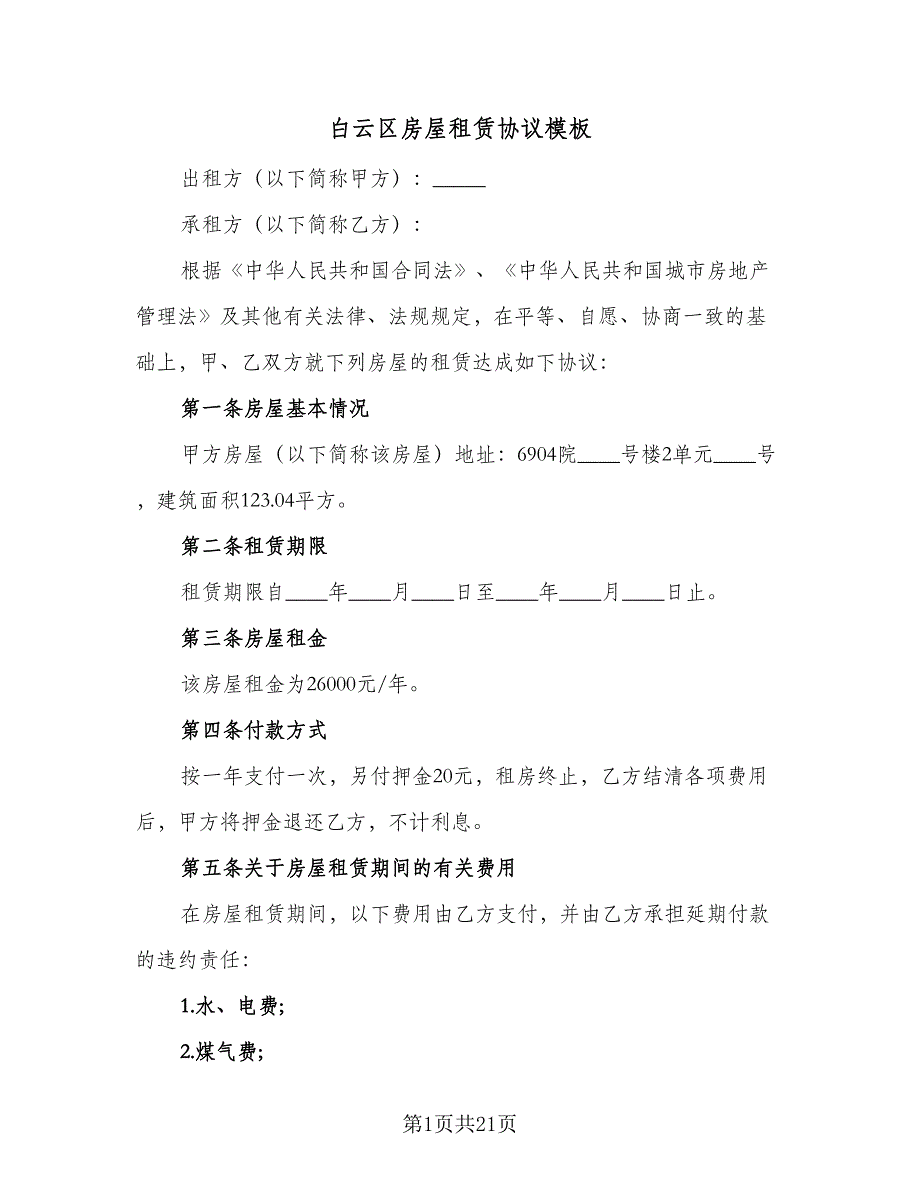 白云区房屋租赁协议模板
出租方（以下简称甲方）：_____
承租方（以下简称乙方）：
根据《中华人民共和国合同法》、《中华人民共和国城市房地产
管理法》及其他有关法律、法规规定，在平等、自愿、协商一致的基
础上，甲、乙双方就下列房屋的租赁达成如下协议：
第一条房屋基本情况
甲方房屋（以下简称该房屋）地址：6904院____号楼2单元____号
，建筑面积123.04平方。
第二条租赁期限
租赁期限自____年____月____日至____年____月____日止。
第三条房屋租金
该房屋租金为26000元/年。
第四条付款方式
按一年支付一次，另付押金20元，租房终止，乙方结清各项费用
后，甲方将押金退还乙方，不计利息。
第五条关于房屋租赁期间的有关费用
在房屋租赁期间，以下费用由乙方支付，并由乙方承担延期付款
的违约责任：
1.水、电费;
2.煤气费;
第1页共21页